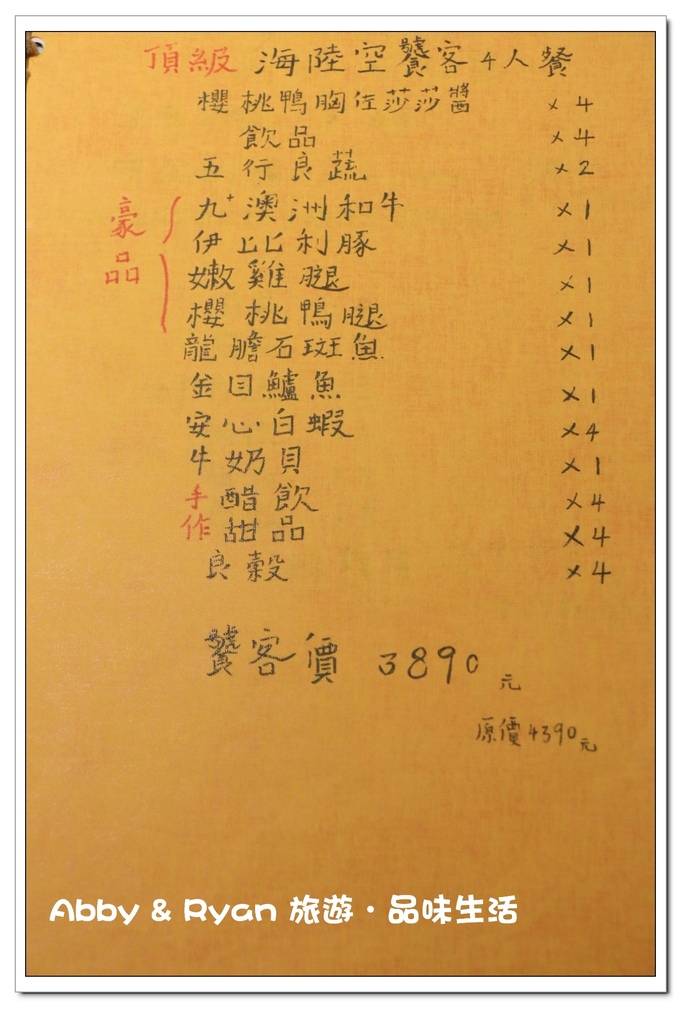 頂級 海陸空饕客4人餐
櫻桃鴨胸佐莎莎醬 ×4
飲品 ×4
五行良蔬 ×2
豪品
九⁺澳洲和牛 ×1
伊比利豚 ×1
嫩雞腿 ×1
櫻桃鴨腿 ×1
龍膽石斑魚 ×1
金目鱸魚 ×1
安心白蝦 ×4
牛奶貝 ×1
手作
醋飲 ×4
甜品 ×4
良穀 ×4
饕客價 3890元
原價4390元
Abby & Ryan 旅遊·品味生活